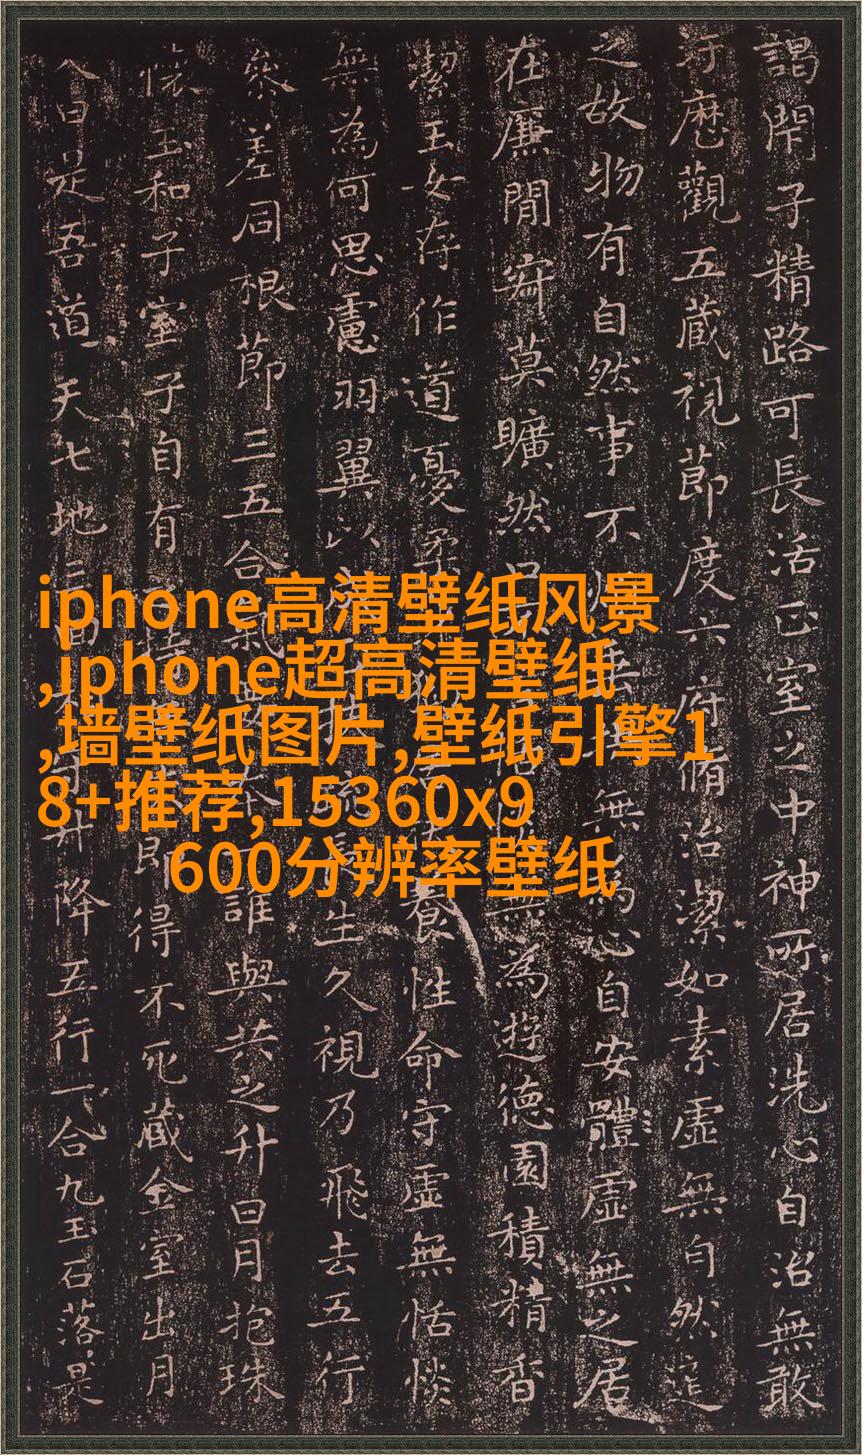 iphone高清壁纸风景
,iphone超高清壁纸
,墙壁纸图片,壁纸引擎1
8+推荐,15360x9
600分辨率壁纸
子精路可長活正室之中神所居洗心自治無敢
歷觀五藏視節度六府脩治潔如素虛無自然道
之故物有自然事不無為心自安體虛無之居
在廉閒寂莫曠然無為遊德園積精香
潔玉女存作道憂柔養性命守虛無恬惔
無為何思慮羽翼以生久視乃飛去五行
參差同根節三五合誰與共之升日月抱珠
懷玉和子室子自有即得不死藏金室出月
入日是吾道天七地三升降五行一合九玉石落是